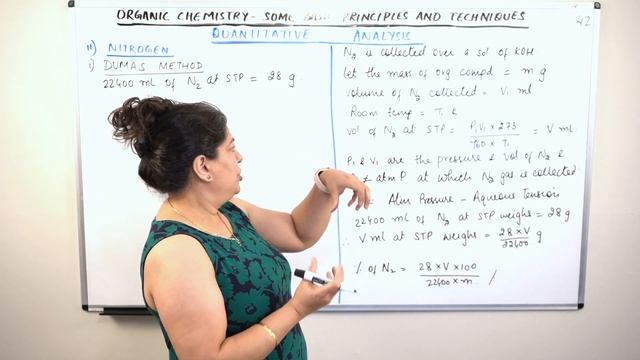 ORGANIC CHEMISTRY- SOME BASIC PRINCIPLES AND TECHNIQUES
42
QUANTITATIVE ANALYSIS
II) NITROGEN
i) DUMAS METHOD
22400 ml of N₂ at STP = 28 g.
N₂ is collected over a sol of KOH
let the mass of org compd = m g
Volume of N₂ collected = V₁ ml
Room temp = T₁ K
vol of N₂ at STP = P₁V₁ × 273 / 760 × T₁ = V ml
P₁ & V₁ are the pressure & vol of N₂ &
≠ atm P at which N₂ gas is collected
= Atm Pressure - Aqueous Tension
22400 ml of N₂ at STP weighs = 28 g
∴ V ml at STP weighs = 28 × V / 22400 g
% of N₂ = 28 × V × 100 / 22400 × m %